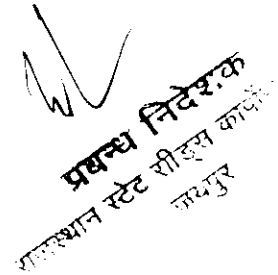 प्रबन्ध निदेशक
राजस्थान स्टेट सीड्स कार्पो
जयपुर